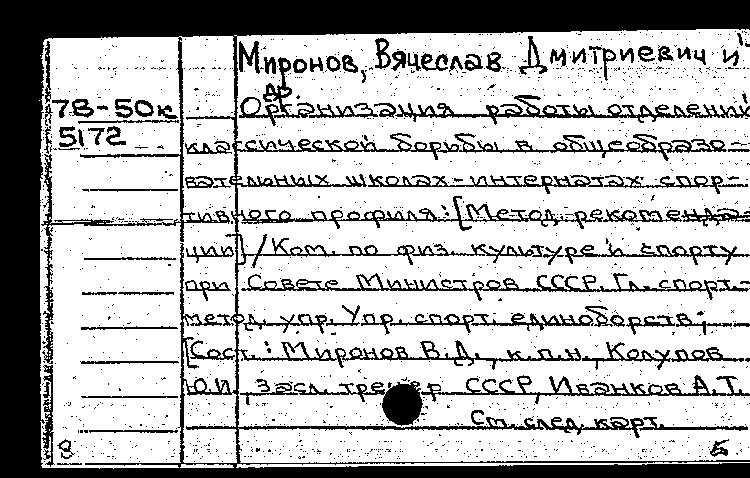 Миронов, Вячеслав Дмитриевич и
др.
78-50к
5172
Организация работы отделений
классической борьбы в общеобразо-
вательных школах-интернатах спор-
тивного профиля: [Метод. рекоменда-
ции] / Ком. по физ. культуре и спорту
при Совете Министров СССР. Гл. спорт.-
метод. упр. Упр. спорт. единоборств;
[Сост.: Миронов В.Д., к.п.н., Колупов
Ю.И., засл. тренер СССР, Иванков А.Т.
См. след. карт.
8
Б